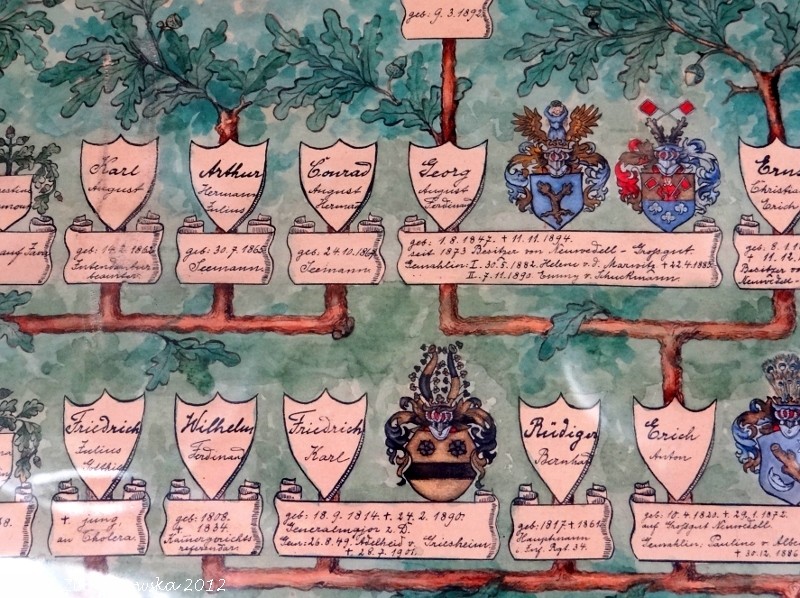 geb: 9. 3. 1892.
Karl
August
Arthur
Hermann
Julius
Conrad
August
Hermann
Georg
August
Ferdinand
Erns
Christia
Erich
auf Janu
geb: 14. 2. 1862
Intendantur
beamter
geb: 30. 7. 1865
Seemann.
geb: 24. 10. 1867
Seemann.
geb: 1. 8. 1847. + 11. 11. 1894.
seit 1873 Besitzer von Neuwedell - Großgut
Gemahlin: I. 30. 5. 1882. Helene v. d. Marwitz + 22. 4. 1885
II. 7. 11. 1890. Emmy v. Schuckmann.
geb: 8. 1
+ 11. 12.
Besitzer vo
Neuwedell -
Friedrich
Julius
Wilhelm
Wilhelm
Ferdinand
Friedrich
Karl
Rüdiger
Bernhard
Erich
Anton
+ jung
an Cholera
geb: 1808.
1834.
Kammergerichts
referendar.
geb: 18. 9. 1814. + 24. 2. 1890.
Generalmajor z. D.
Gem: 26. 8. 49. Adelheid v. Griesheim
+ 28. 7. 1901.
geb: 1817 + 1861
Hauptmann
i. Inf. Rgt. 34.
geb: 10. 4. 1820. + 29. 1. 1872.
auf Großgut Neuwedell.
Gemahlin: Pauline v. Albe
+ 30. 12. 1886
2012